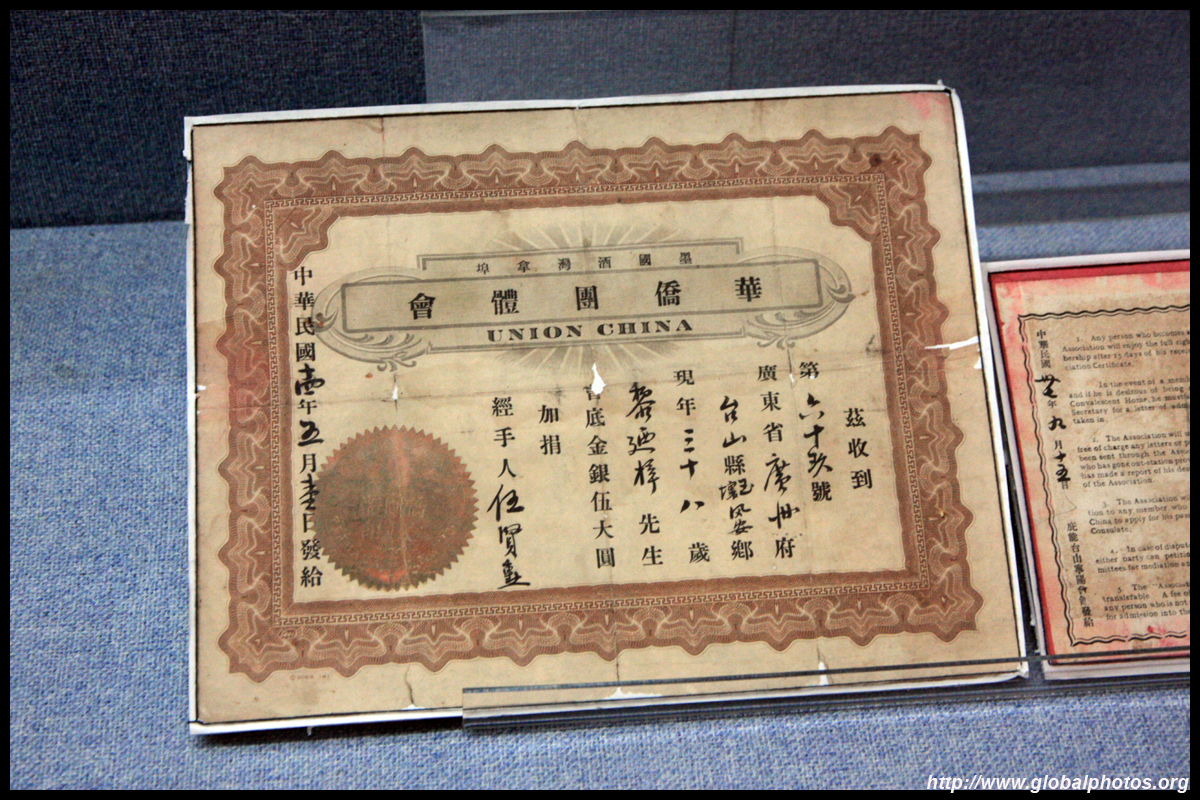 墨國酒灣拿埠
華僑團體會
UNION CHINA
茲收到
第六十玖號
廣東省廣州府
台山縣 鄉
現年三十八歲
黎迺 先生
會底金銀伍大圓
加捐
經手人伍賢
中華民國 年五月 日發給
1. Any person who becomes
Association will enjoy the full
bership after 15 days of his
ciation Certificate.
In the event of a
and if he is desirous of being
Convalescent Home, he must
Secretary for a letter of
taken in.
2. The Association will
free of charge any letters or
been sent through the
who has gone out-station
has made a report of his
of the Association.
3. The Association
tion to any member who
China to apply for his
Consulate.
4. In case of
either party can
mittees for mediation
The
transferable. A fee of
any person who is not
for admission into the
中華民國 年九月十五日
台山寧陽會館發給
http://www.globalphotos.org